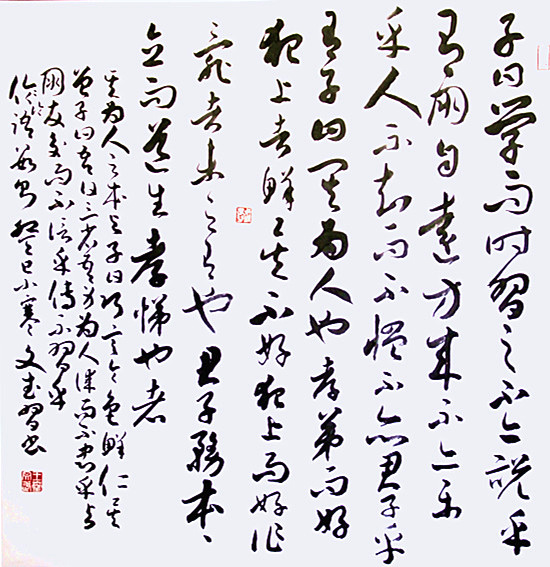 子曰學而时習之不亦説乎
有朋自遠方来不亦乐
乎人不知而不愠不亦君子乎
有子曰其为人也孝弟而好
犯上者鲜矣不好犯上而好作
亂者未之有也君子務本、
立而道生孝悌也者
其为人之本与子曰巧言令色鲜仁矣
曾子曰吾日三省吾身为人谋而不忠乎与
朋友交而不信乎传不習乎
论语 巳小寒文武習书